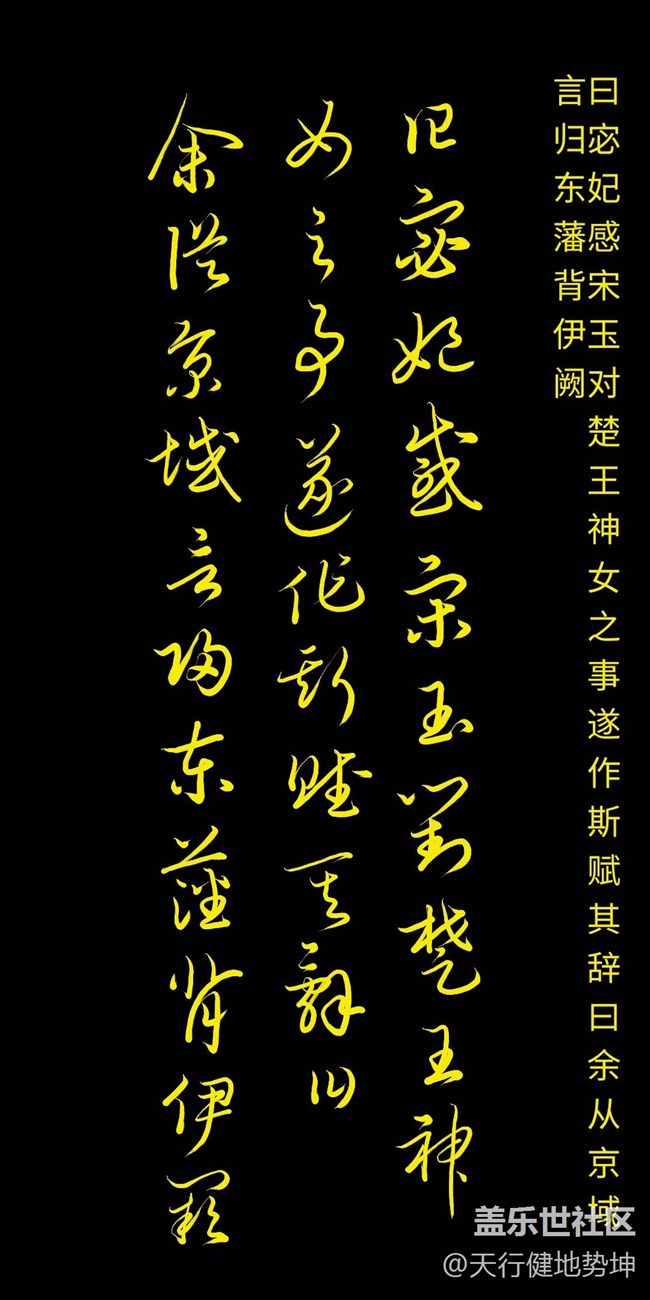 曰宓妃感宋玉对楚王神女之事遂作斯赋其辞曰余从京域
言归东藩背伊阙
曰宓妃感宋玉對楚王神
女之事遂作斯賦其辭曰
余從京域言歸東藩背伊闕
盖乐世社区
@天行健地势坤